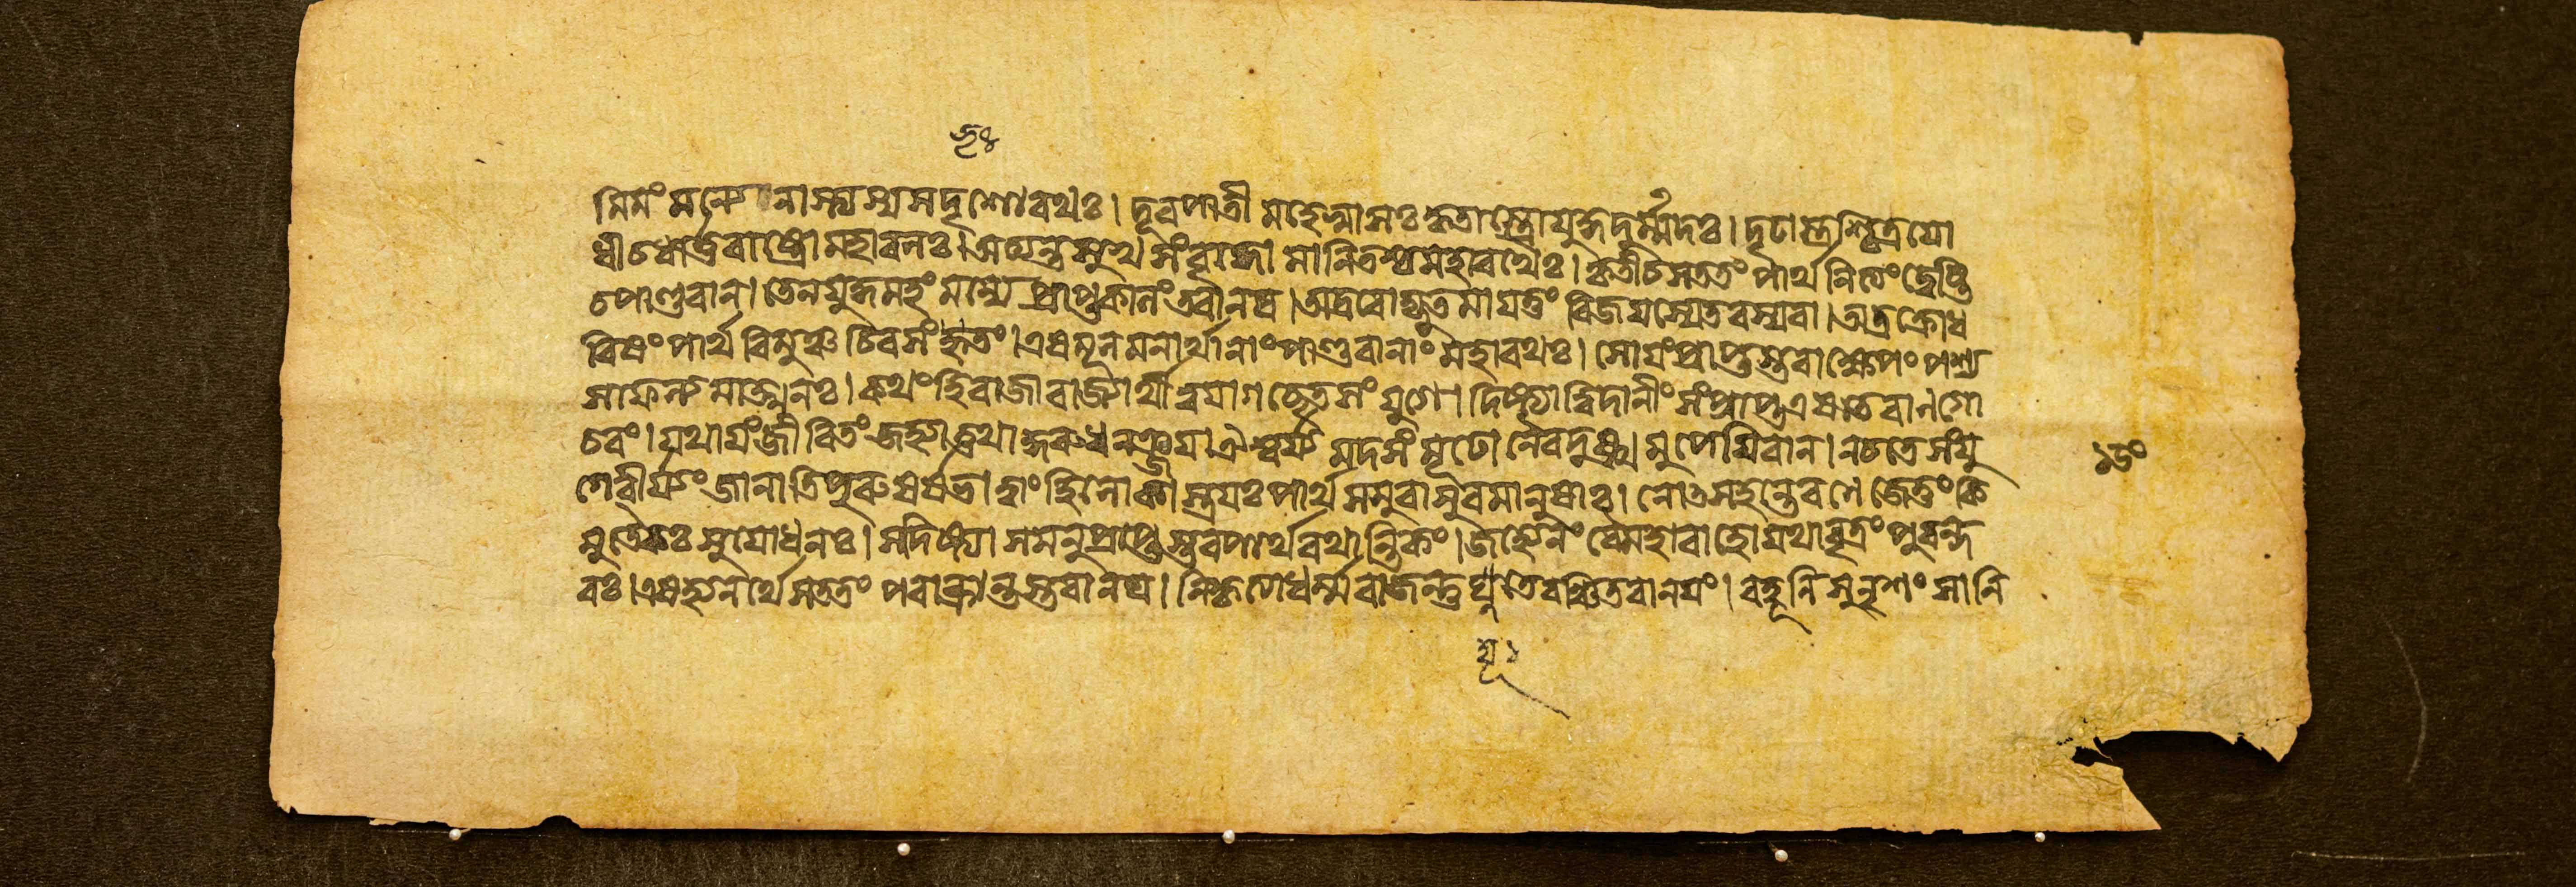 মিমং মন্যে নাস্ত্যস্য সদৃশো রথঃ। দূরপাতী মহেষ্বাসঃ কৃতাস্ত্রো যুদ্ধদুর্ম্মদঃ। দৃঢাস্ত্রশ্চিত্রযো
ধী চ ধার্ত্তরাষ্ট্রো মহাবলঃ। অত্যন্তসুখসংবৃদ্ধো মানিতশ্চ মহারথৈঃ। কৃতী চ সততং পার্থ নিত্যং দ্বেষ্টি
চ পাণ্ডবান। তেন যুদ্ধমহং মন্যে প্রাপ্তকালং তবানঘ। অত্র বো দ্যূতমাযত্তং বিজযস্যেতরস্য বা। অত্র ক্রোধ
বিষং পার্থ বিমুঞ্চ চিরসংভৃতং। এষ মূলমনর্থানাং পাণ্ডবানাং মহারথঃ। সোযং প্রাপ্তস্তবাক্ষেপং পশ্য
সাফল্যমাত্মনঃ। কথং হি রাজা রাজ্যার্থী ত্বযা গচ্ছেত সংযুগে। দিষ্ট্যা ত্বিদানীং সংপ্রাপ্ত এষ তে বাণগো
চরং। যথাযং জীবিতং জহ্যাত্তথা কুরু ধনঞ্জয। ঐশ্বর্য্যমদসংমূঢো নৈব দুঃখমুপেযিবান। ন চ তে সংযু
গে বীর্য্যং জানাতি পুরুষর্ষভ। ত্বাং হি লোকাস্ত্রযঃ পার্থ সসুরাসুরমানুষাঃ। নোত্সহন্তে রণে জেতুং কি
মুতৈকঃ সুযোধনঃ। স দিষ্ট্যা সমনুপ্রাপ্তস্তব পার্থ রথান্তিকং। জহ্যেনং বৈ মহাবাহো যথা বৃত্রং পুরন্দ
রঃ। এষ হ্যনর্থে সততং পরাক্রান্তস্তবানঘ। নিকৃত্যা ধর্ম্মরাজন্তু দ্যূতে বঞ্চিতবানযং। বহূনি সুনৃশংসানি